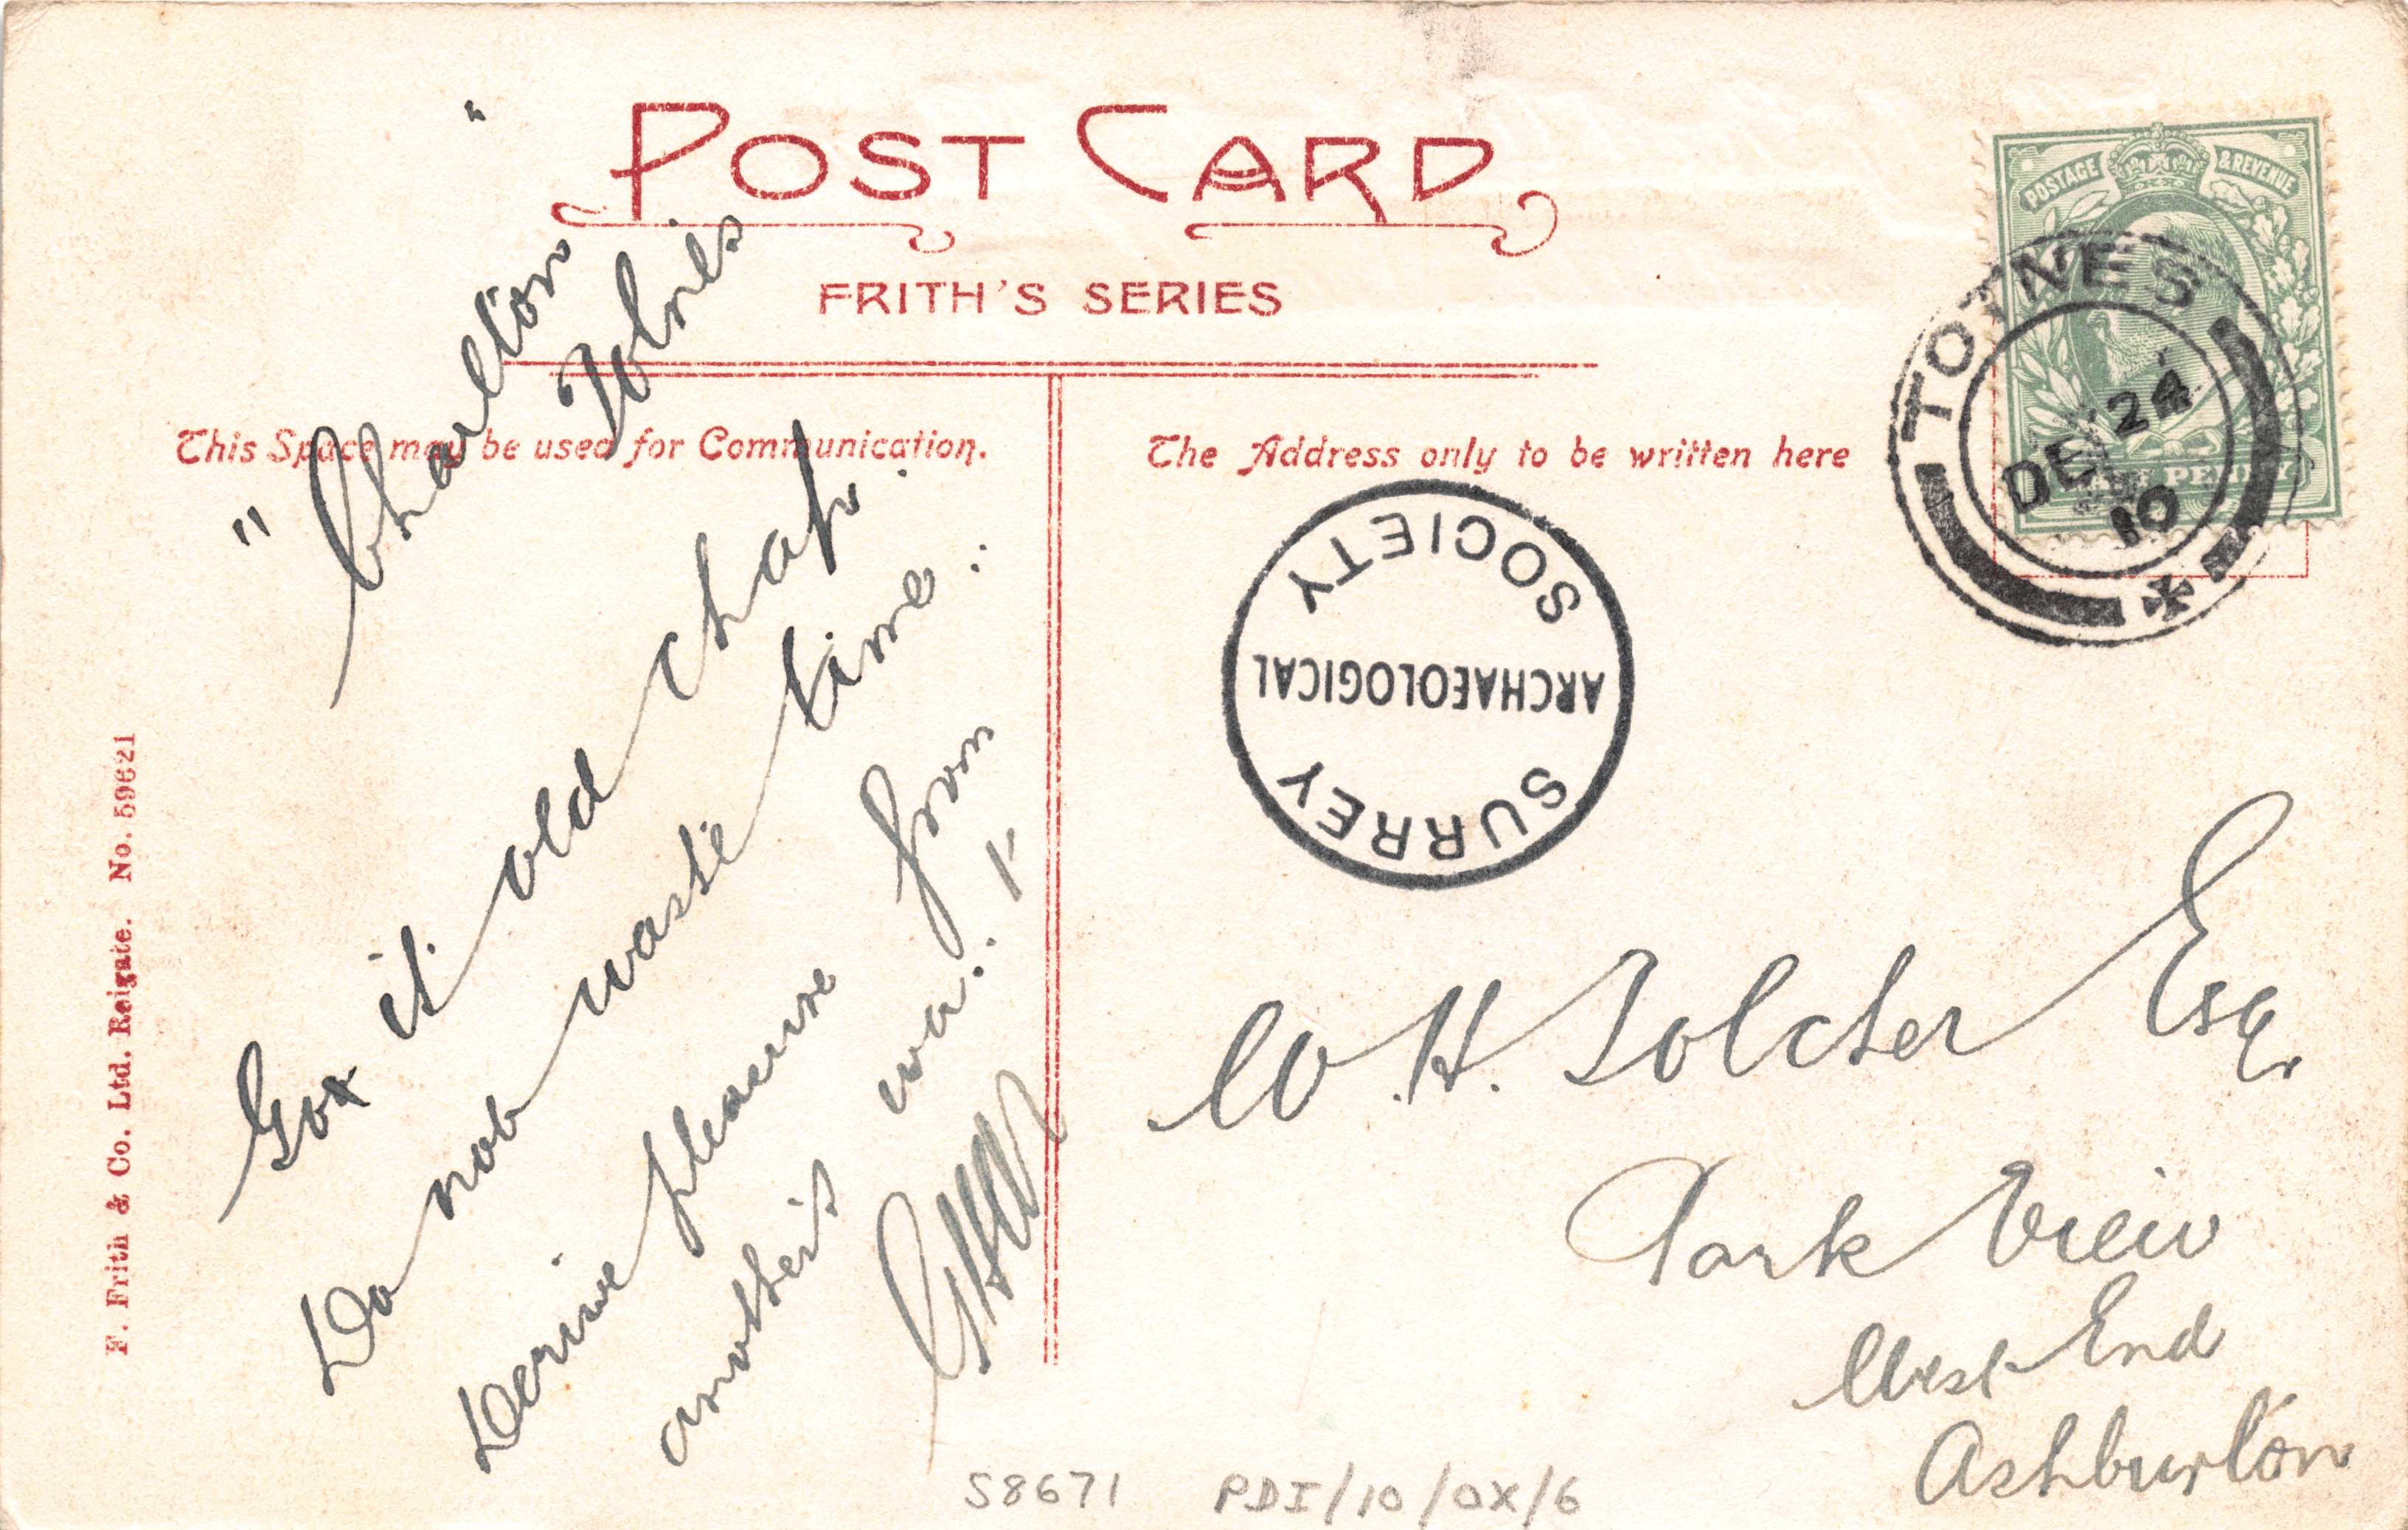 POST CARD
FRITH'S SERIES
This Space may be used for Communication.
The Address only to be written here
POSTAGE & REVENUE
HALF PENNY
TOTNES
DE 24
10
SURREY
ARCHAEOLOGICAL
SOCIETY
F. Frith & Co. Ltd. Reigate. No. 59621
"Charlton"
Totnes
it old chap.
Do not waste time..
Derive pleasure from
another's
W. H. Tolcher Esq.
Park View
West End
Ashburton
S8671 PDI/10/OX/6